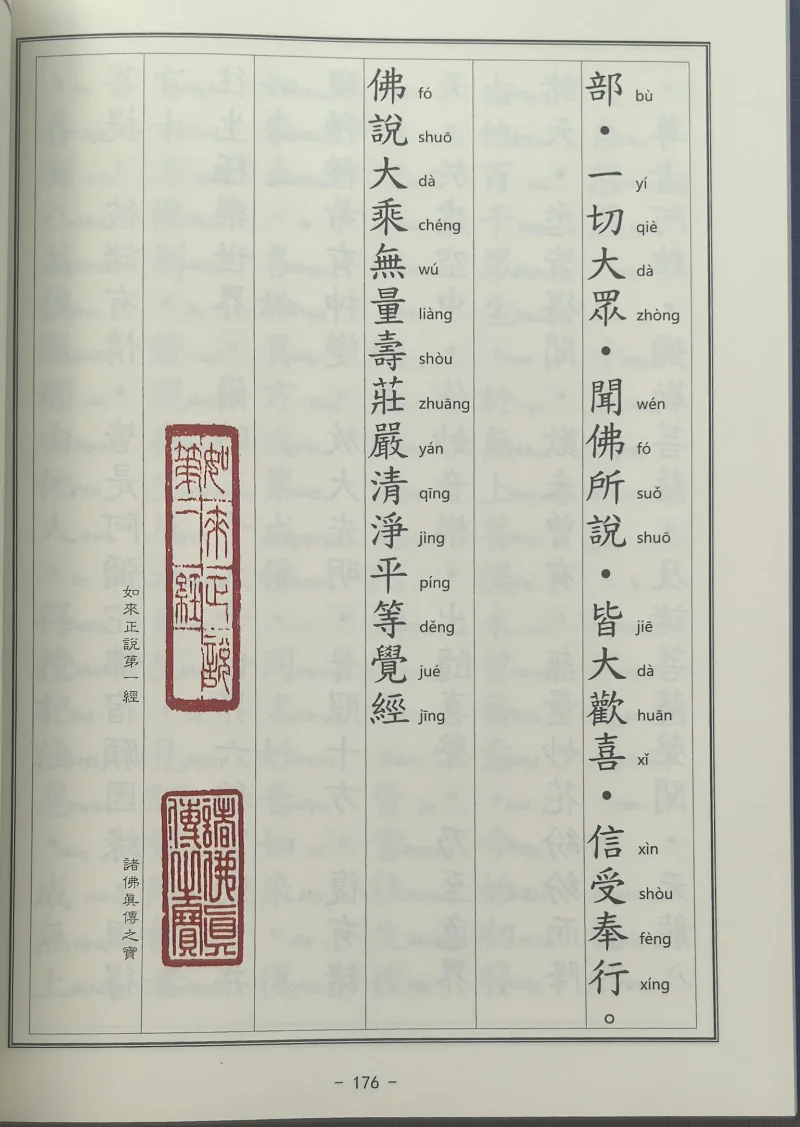 部bù・一yí切qiè大dà眾zhòng・聞wén佛fó所suǒ說shuō・皆jiē大dà歡huān喜xǐ・信xìn受shòu奉fèng行xíng。
佛fó說shuō大dà乘chéng無wú量liàng壽shòu莊zhuāng嚴yán清qīng淨jìng平píng等děng覺jué經jīng
如來正說
第一經
如來正說第一經
諸佛眞
傳之寶
諸佛眞傳之寶
- 176 -